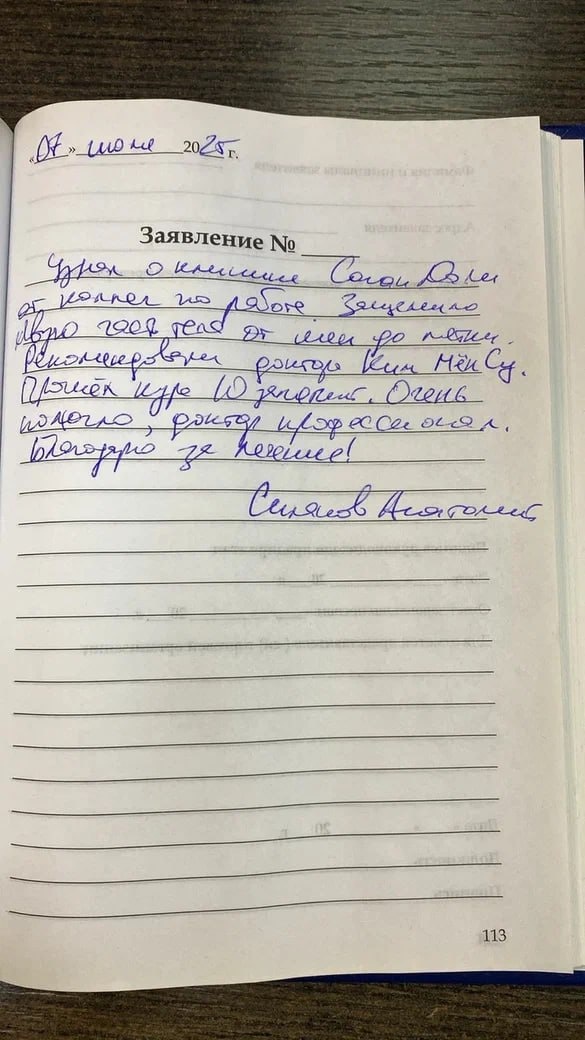 «07» июля 2025 г.
Заявление №
Узнал о клинике Соган Дали
от коллег по работе Защемило
левую часть тела от шеи до пятки.
Рекомендовали доктора Ким Мён Су.
Прошёл курс 10 занятий. Очень
помогло, доктор профессионал.
Благодарю за лечение!
Анатолий
113